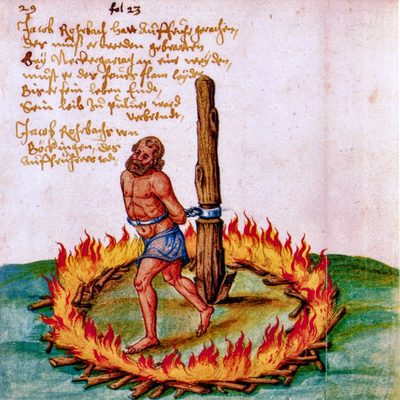 29 fol 23
Jacob Rohrbach hatt Auffruhr gerachen,
Der muß er werden gebratten
Bey Neckergartach an eine weyden,
muß er des feurs flam leyden
Bis er sein leben endt,
Sein leib zu puluer ward
verbrendt,
Jacob Rohrbachs von
Böckingen, des
Auffruhrers todt,